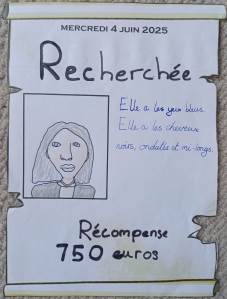 MERCREDI 4 JUIN 2025
Recherchée
Elle a les yeux bleus.
Elle a les cheveux
noirs, ondulés et mi-longs.
Récompense
750 euros